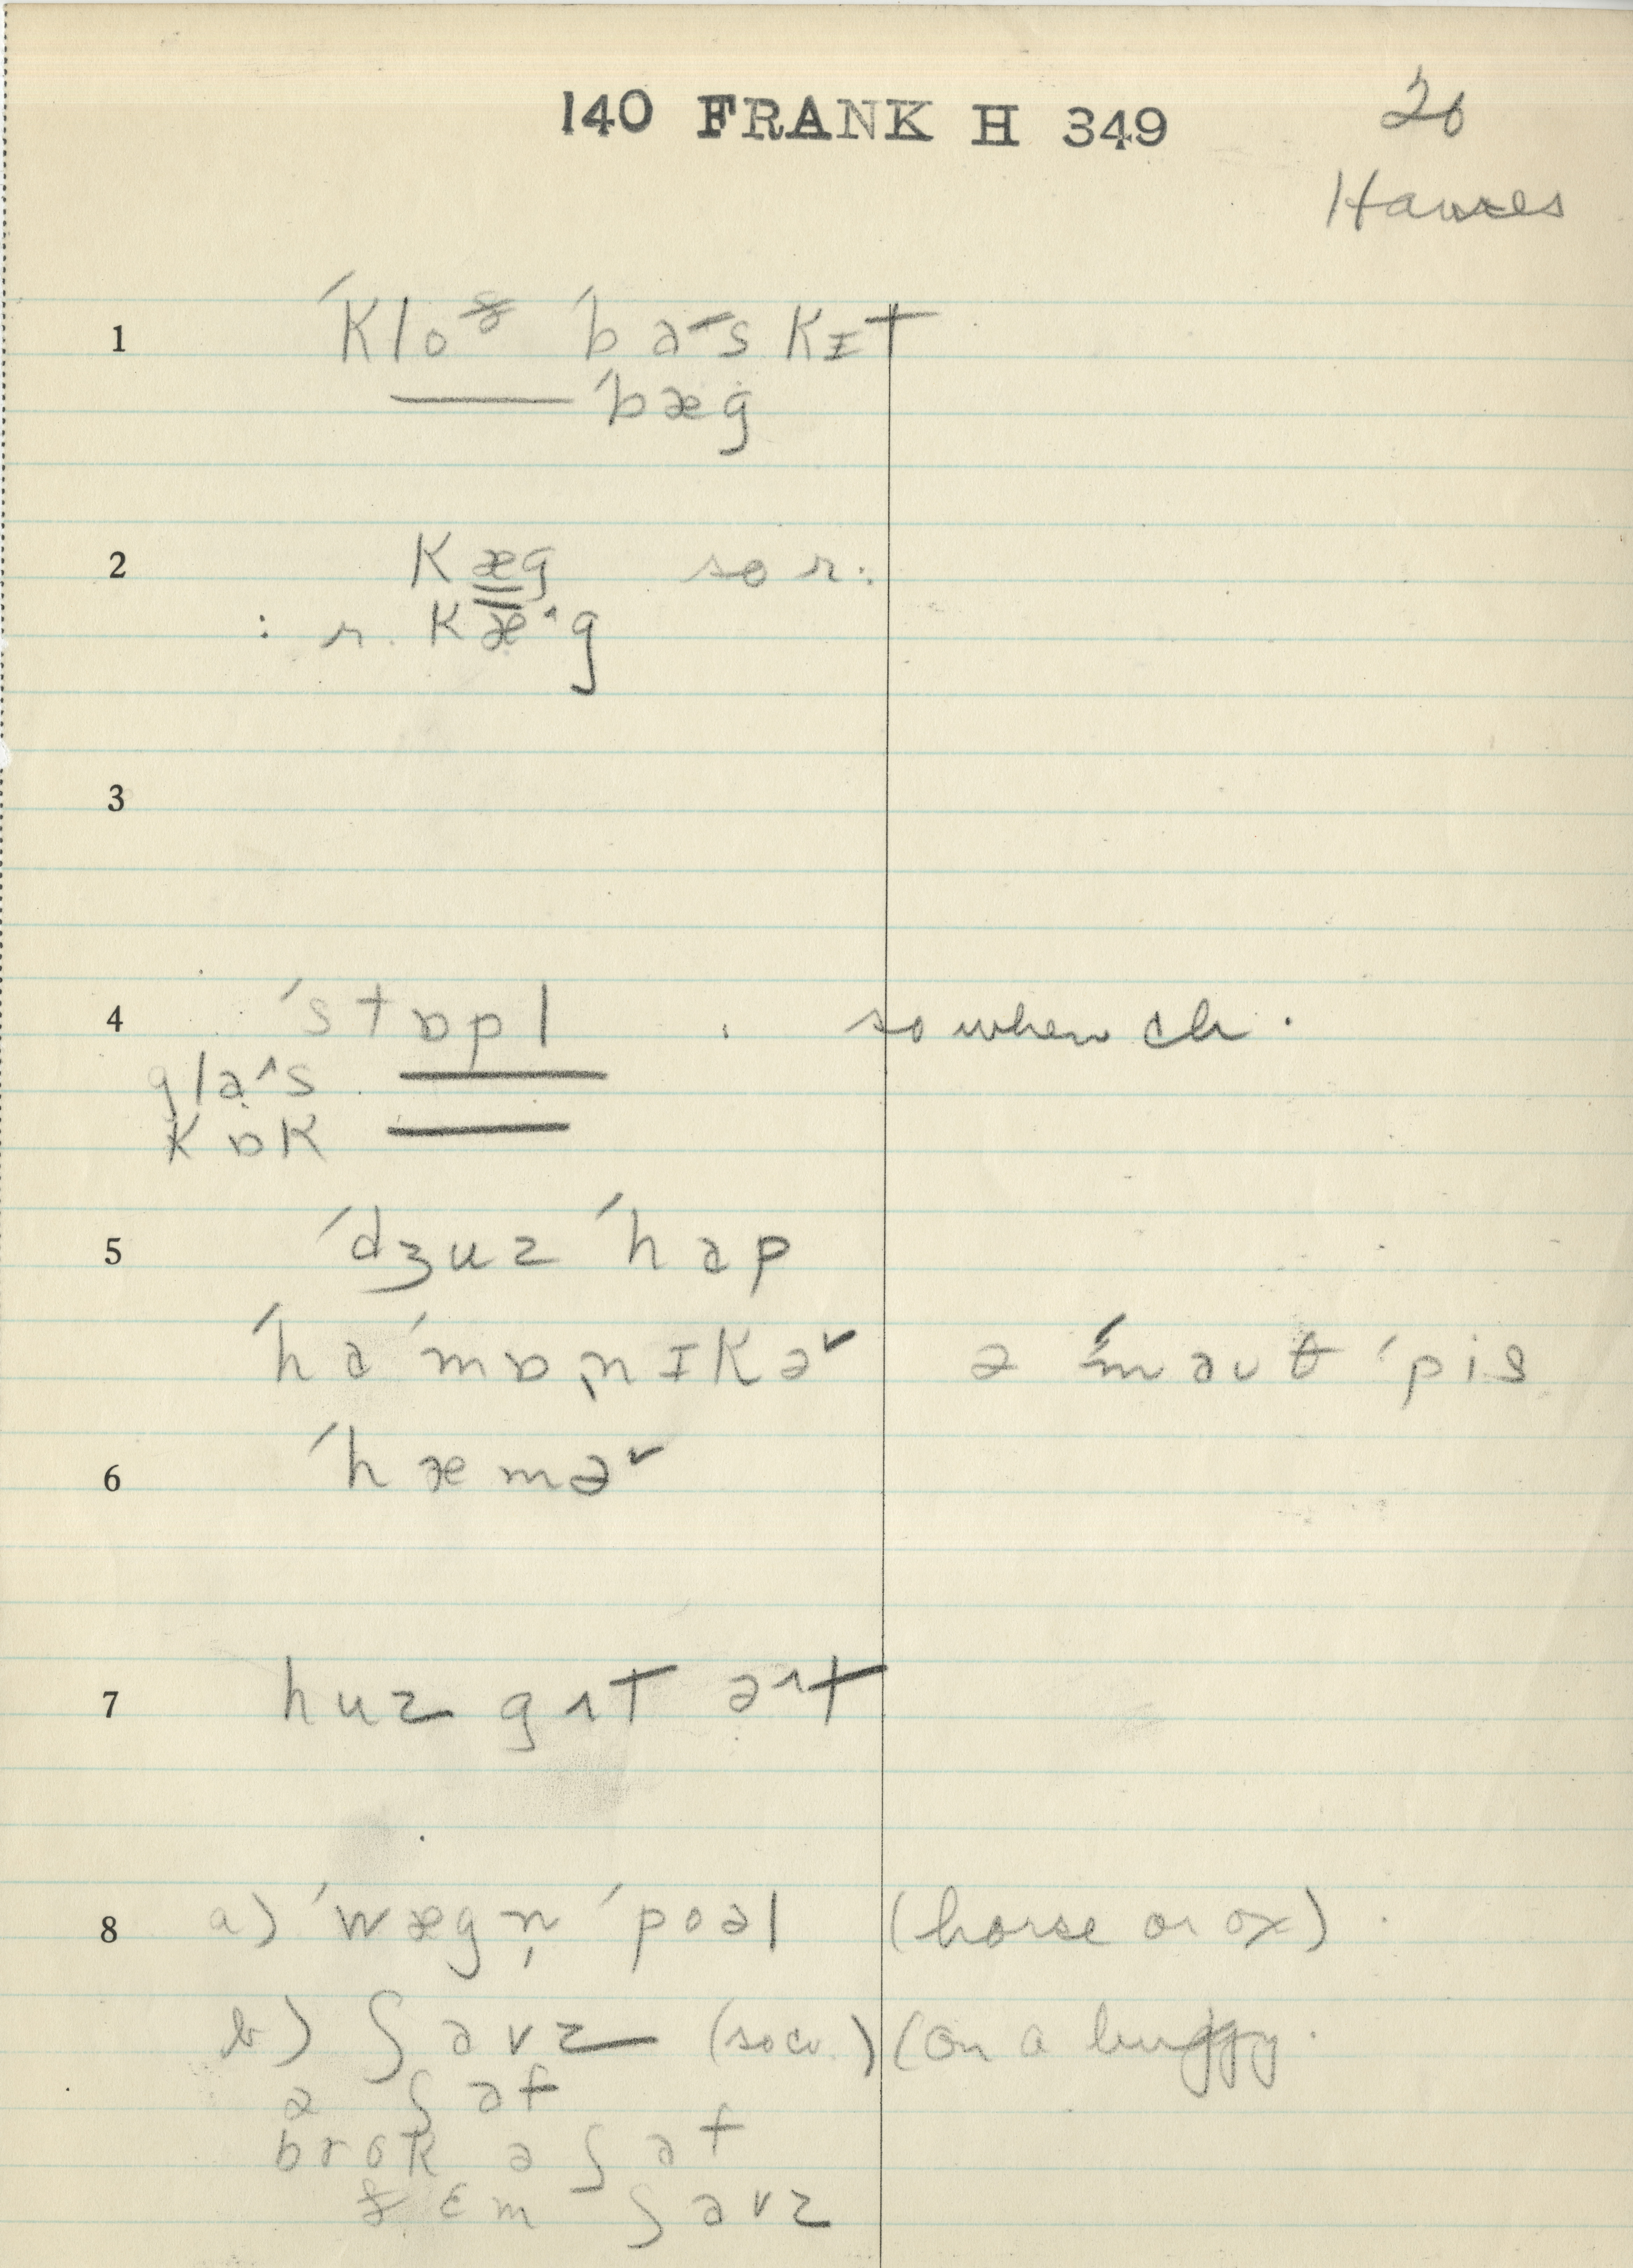 140 FRANK H 349
20
Hawes
1 ˈkloᶞ ˈba˔skɪt
—— ˈbæg
2 kæg so r.
: r. kæ^g
3
4 ˈstɒpl . so when ch.
gla^s ——
kɒk ——
5 ˈdʒuz ˈhap
ˈhaˈmɒnɪkə˅ ə ˈmauθ ˈpis
6 ˈhæmə˅
7 huz gɪt ə^t
8 a) ˈwægn̩ ˈpoəl (horse or ox).
b) ʃavz (so w.) (on a buggy.
ə ʃaf
brok ə ʃaf
ðɛm ʃavz